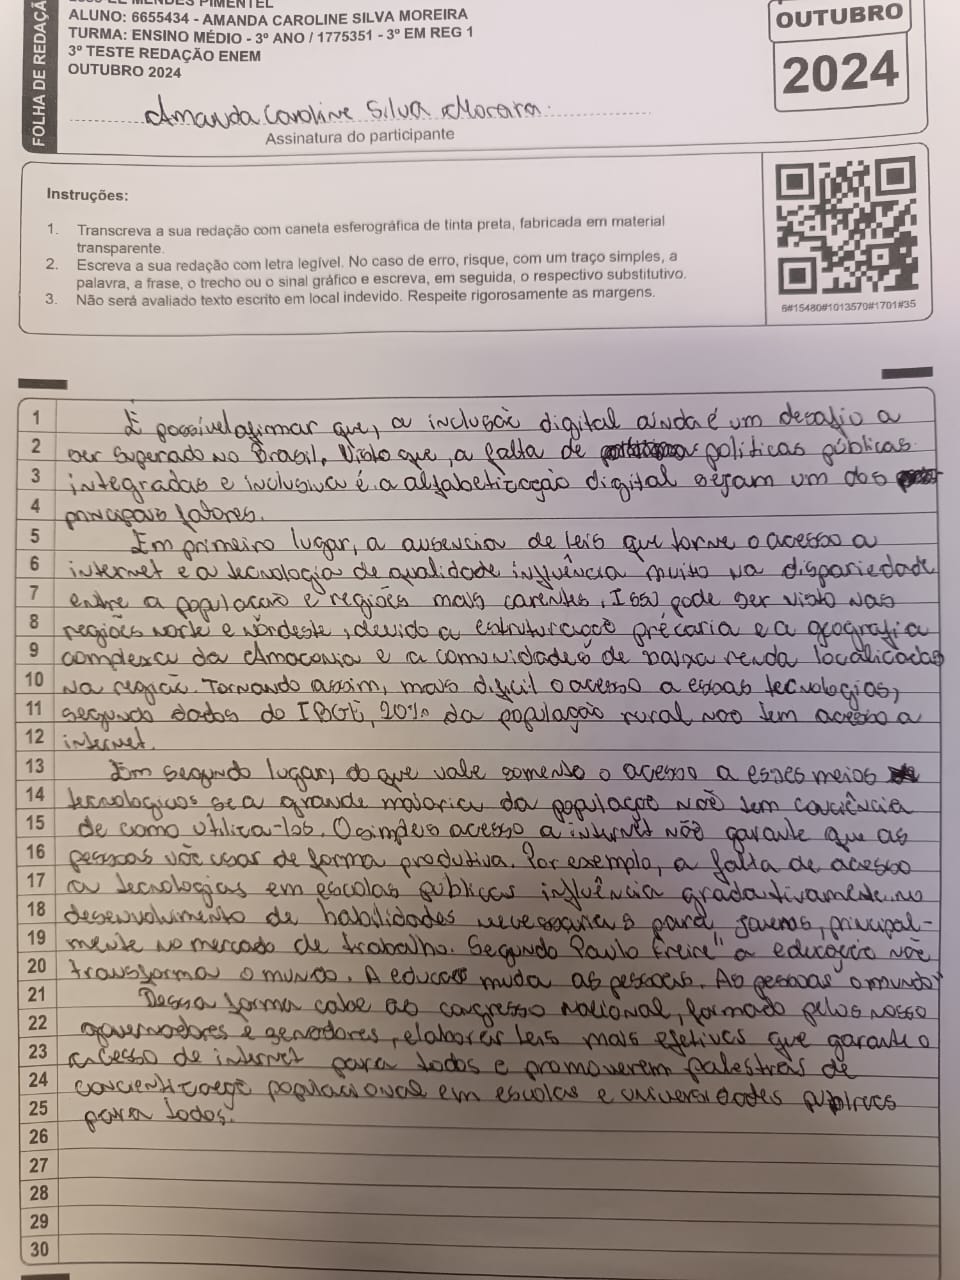 FOLHA DE REDAÇÃ
MENDES PIMENTEL
ALUNO: 6655434 - AMANDA CAROLINE SILVA MOREIRA
TURMA: ENSINO MÉDIO - 3º ANO / 1775351 - 3º EM REG 1
3º TESTE REDAÇÃO ENEM
OUTUBRO 2024
OUTUBRO
2024
Amanda Caroline Silva Moreira.
Assinatura do participante
Instruções:
1. Transcreva a sua redação com caneta esferográfica de tinta preta, fabricada em material
transparente.
2. Escreva a sua redação com letra legível. No caso de erro, risque, com um traço simples, a
palavra, a frase, o trecho ou o sinal gráfico e escreva, em seguida, o respectivo substitutivo.
3. Não será avaliado texto escrito em local indevido. Respeite rigorosamente as margens.
6#15480#1013570#1701#35
1 É possível afirmar que, a inclusão digital ainda é um desafio a
2 ser superado no Brasil. Visto que, a falta de políticas públicas
3 integradas e inclusiva é a alfabetização digital sejam um dos
4 principais fatores.
5 Em primeiro lugar, a ausencia de leis que torne o acesso a
6 internet e a tecnologia de qualidade influência muito na dispariedade
7 entre a população e regiões mais carentes. Isso pode ser visto nas
8 regiões norte e nordeste, devido a estruturação précaria e a geografia
9 complexa da Amazonia e a comunidades de baixa renda localizadas
10 na região. Tornando assim, mais dificil o acesso a essas tecnologias,
11 segundo dados do IBGE, 20% da população rural não tem acesso a
12 internet.
13 Em segundo lugar, do que vale somente o acesso a esses meios
14 tecnologicos se a grande maioria da população não tem conciência
15 de como utiliza-los. O simples acesso a internet não garante que as
16 pessoas vão usar de forma produtiva. Por exemplo, a falta de acesso
17 a tecnologias em escolas públicas influência gradativamente no
18 desenvolvimento de habilidades necessárias para jovens, principal-
19 mente no mercado de trabalho. Segundo Paulo Freire "a educação não
20 transforma o mundo. A educação muda as pessoas. As pessoas o mundo"
21 Dessa forma cabe ao congresso nacional, formado pelos nosso
22 governadores e senadores, elaborar leis mais efetivas que garante o
23 acesso de internet para todos e promoverem palestras de
24 populacional em escolas e universidades publicas
25 para todos.
26
27
28
29
30